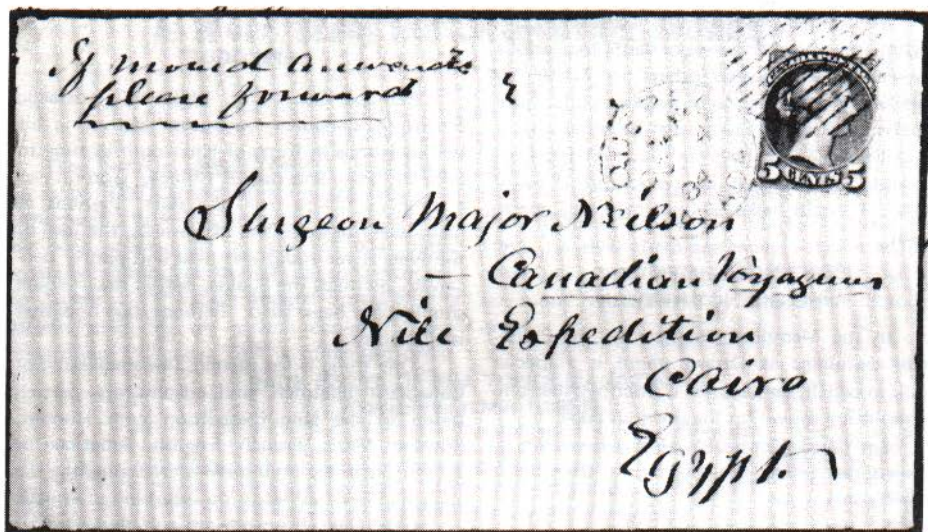 If moved onwards
please forward
Surgeon Major Neilson
– Canadian Voyageurs
Nile Expedition
Cairo
Egypt.
5 CENTS 5